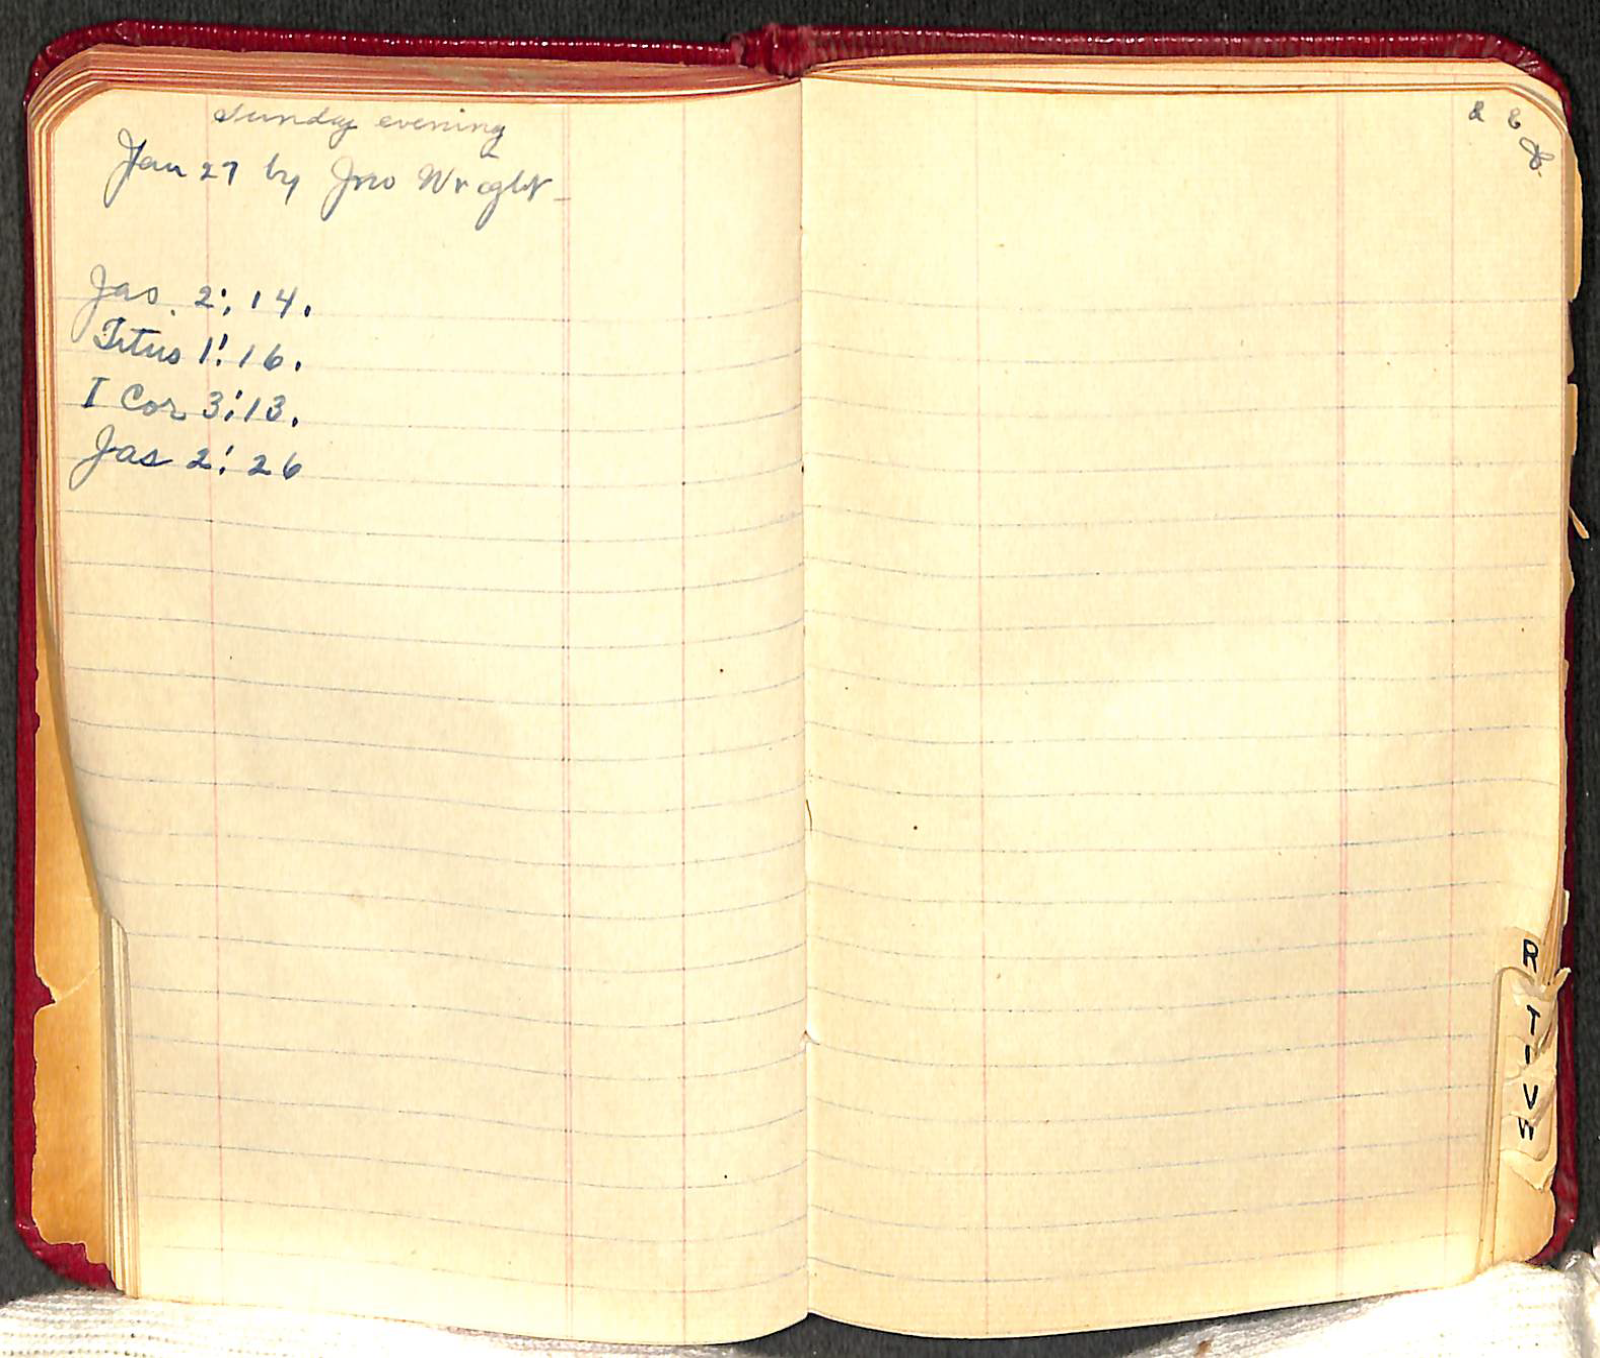 Sunday evening
Jan 27 by Jno Wright
Jas. 2:14.
Titus 1:16.
I Cor 3:13.
Jas 2:26
R
T
I
V
W